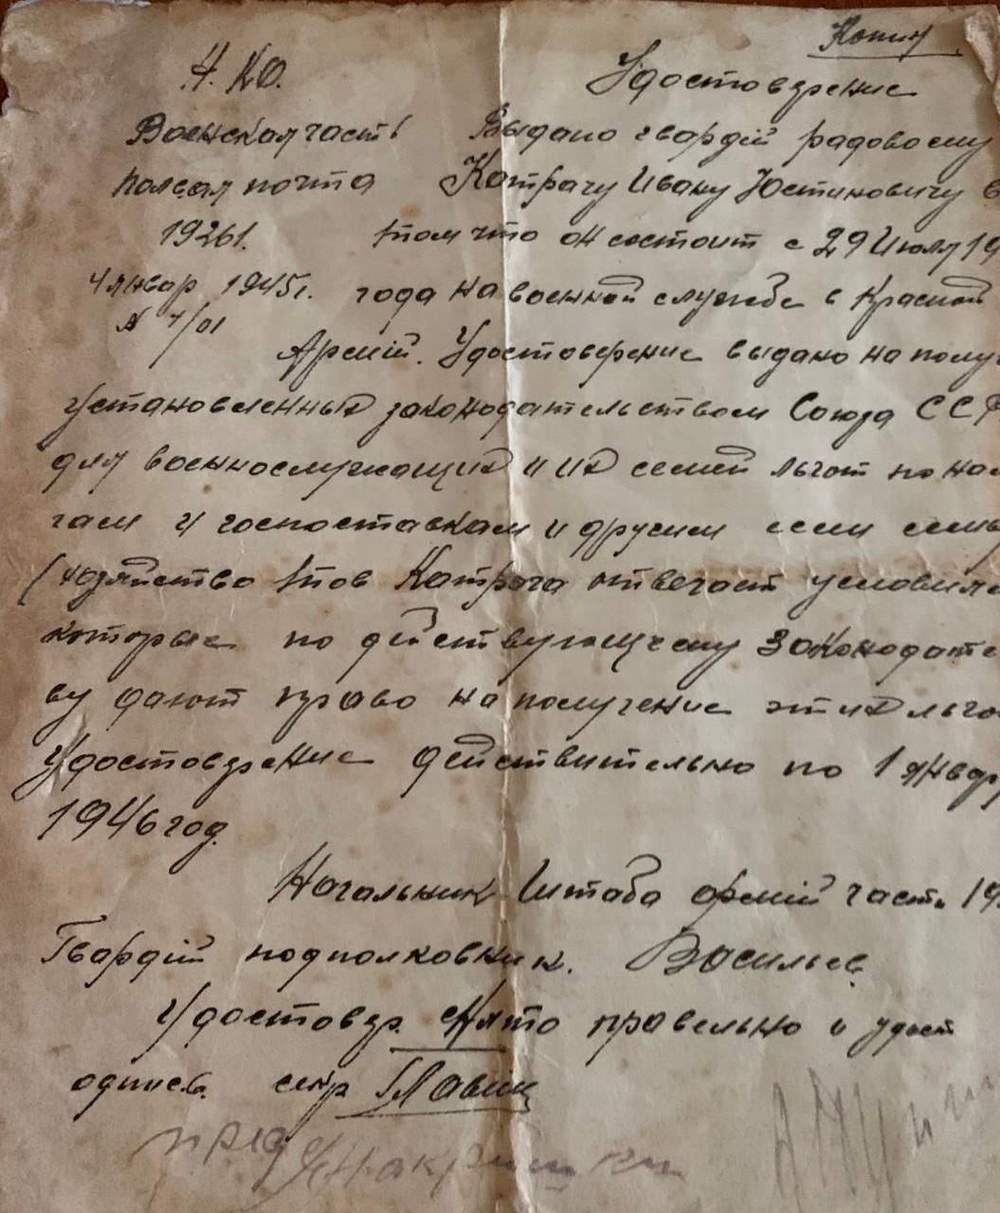 Копия
Н.К.О. Удостоверение
Воинская часть Выдано гвардій рядовому
полевая почта Катрачу Ивану Юстиновичу в
19261. том что он состоит с 29 Июля 19
4 январ 1945г. года на военной службе в Красной
N 4/01
Армій. Удостоверение выдано на полу
установленных законодательством Союза ССР
для военнослужащих и их семей льгот по нал
гам и госпоставкам и другим если семь
(хозяйство тов Катрача отвечает условиям
которые по действующему законодате
ву дают право на получение этих льго
Удостоверение действительно по 1 январ
1946 год.
Начальник Штаба армій част. 19
Гвардій подполковник. Васильев
Удостовер. правельно и удост
секр
пред